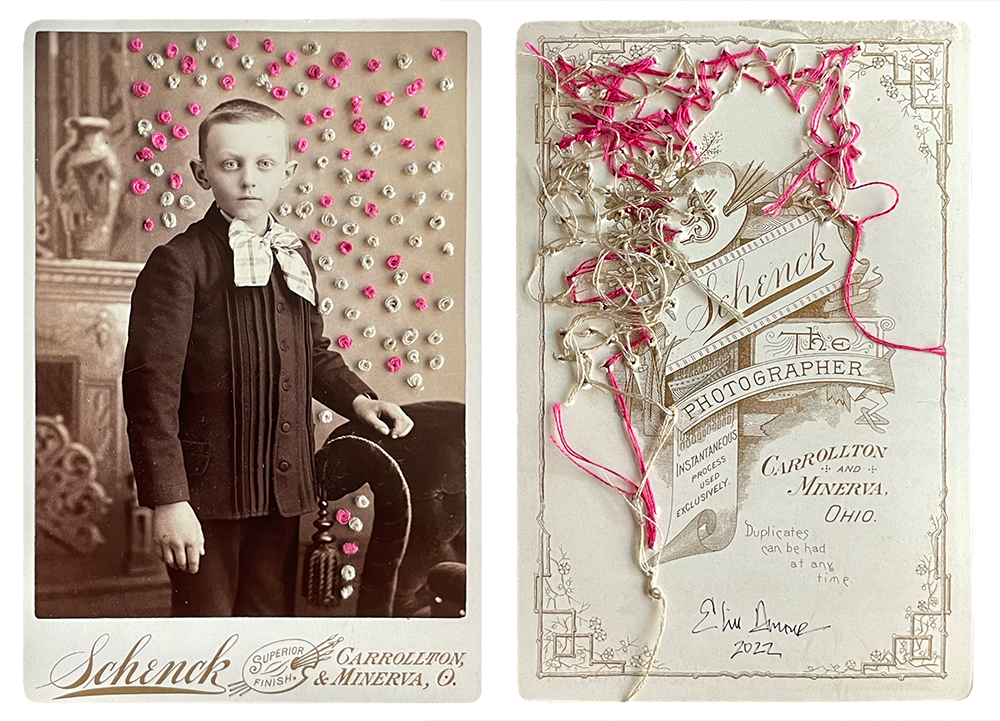 Schenck
SUPERIOR
FINISH.
CARROLLTON,
& MINERVA, O.
Schenck
The
PHOTOGRAPHER
INSTANTANEOUS
PROCESS
USED
EXCLUSIVELY.
CARROLLTON
AND
MINERVA,
OHIO.
Duplicates
can be had
at any
time.
2022